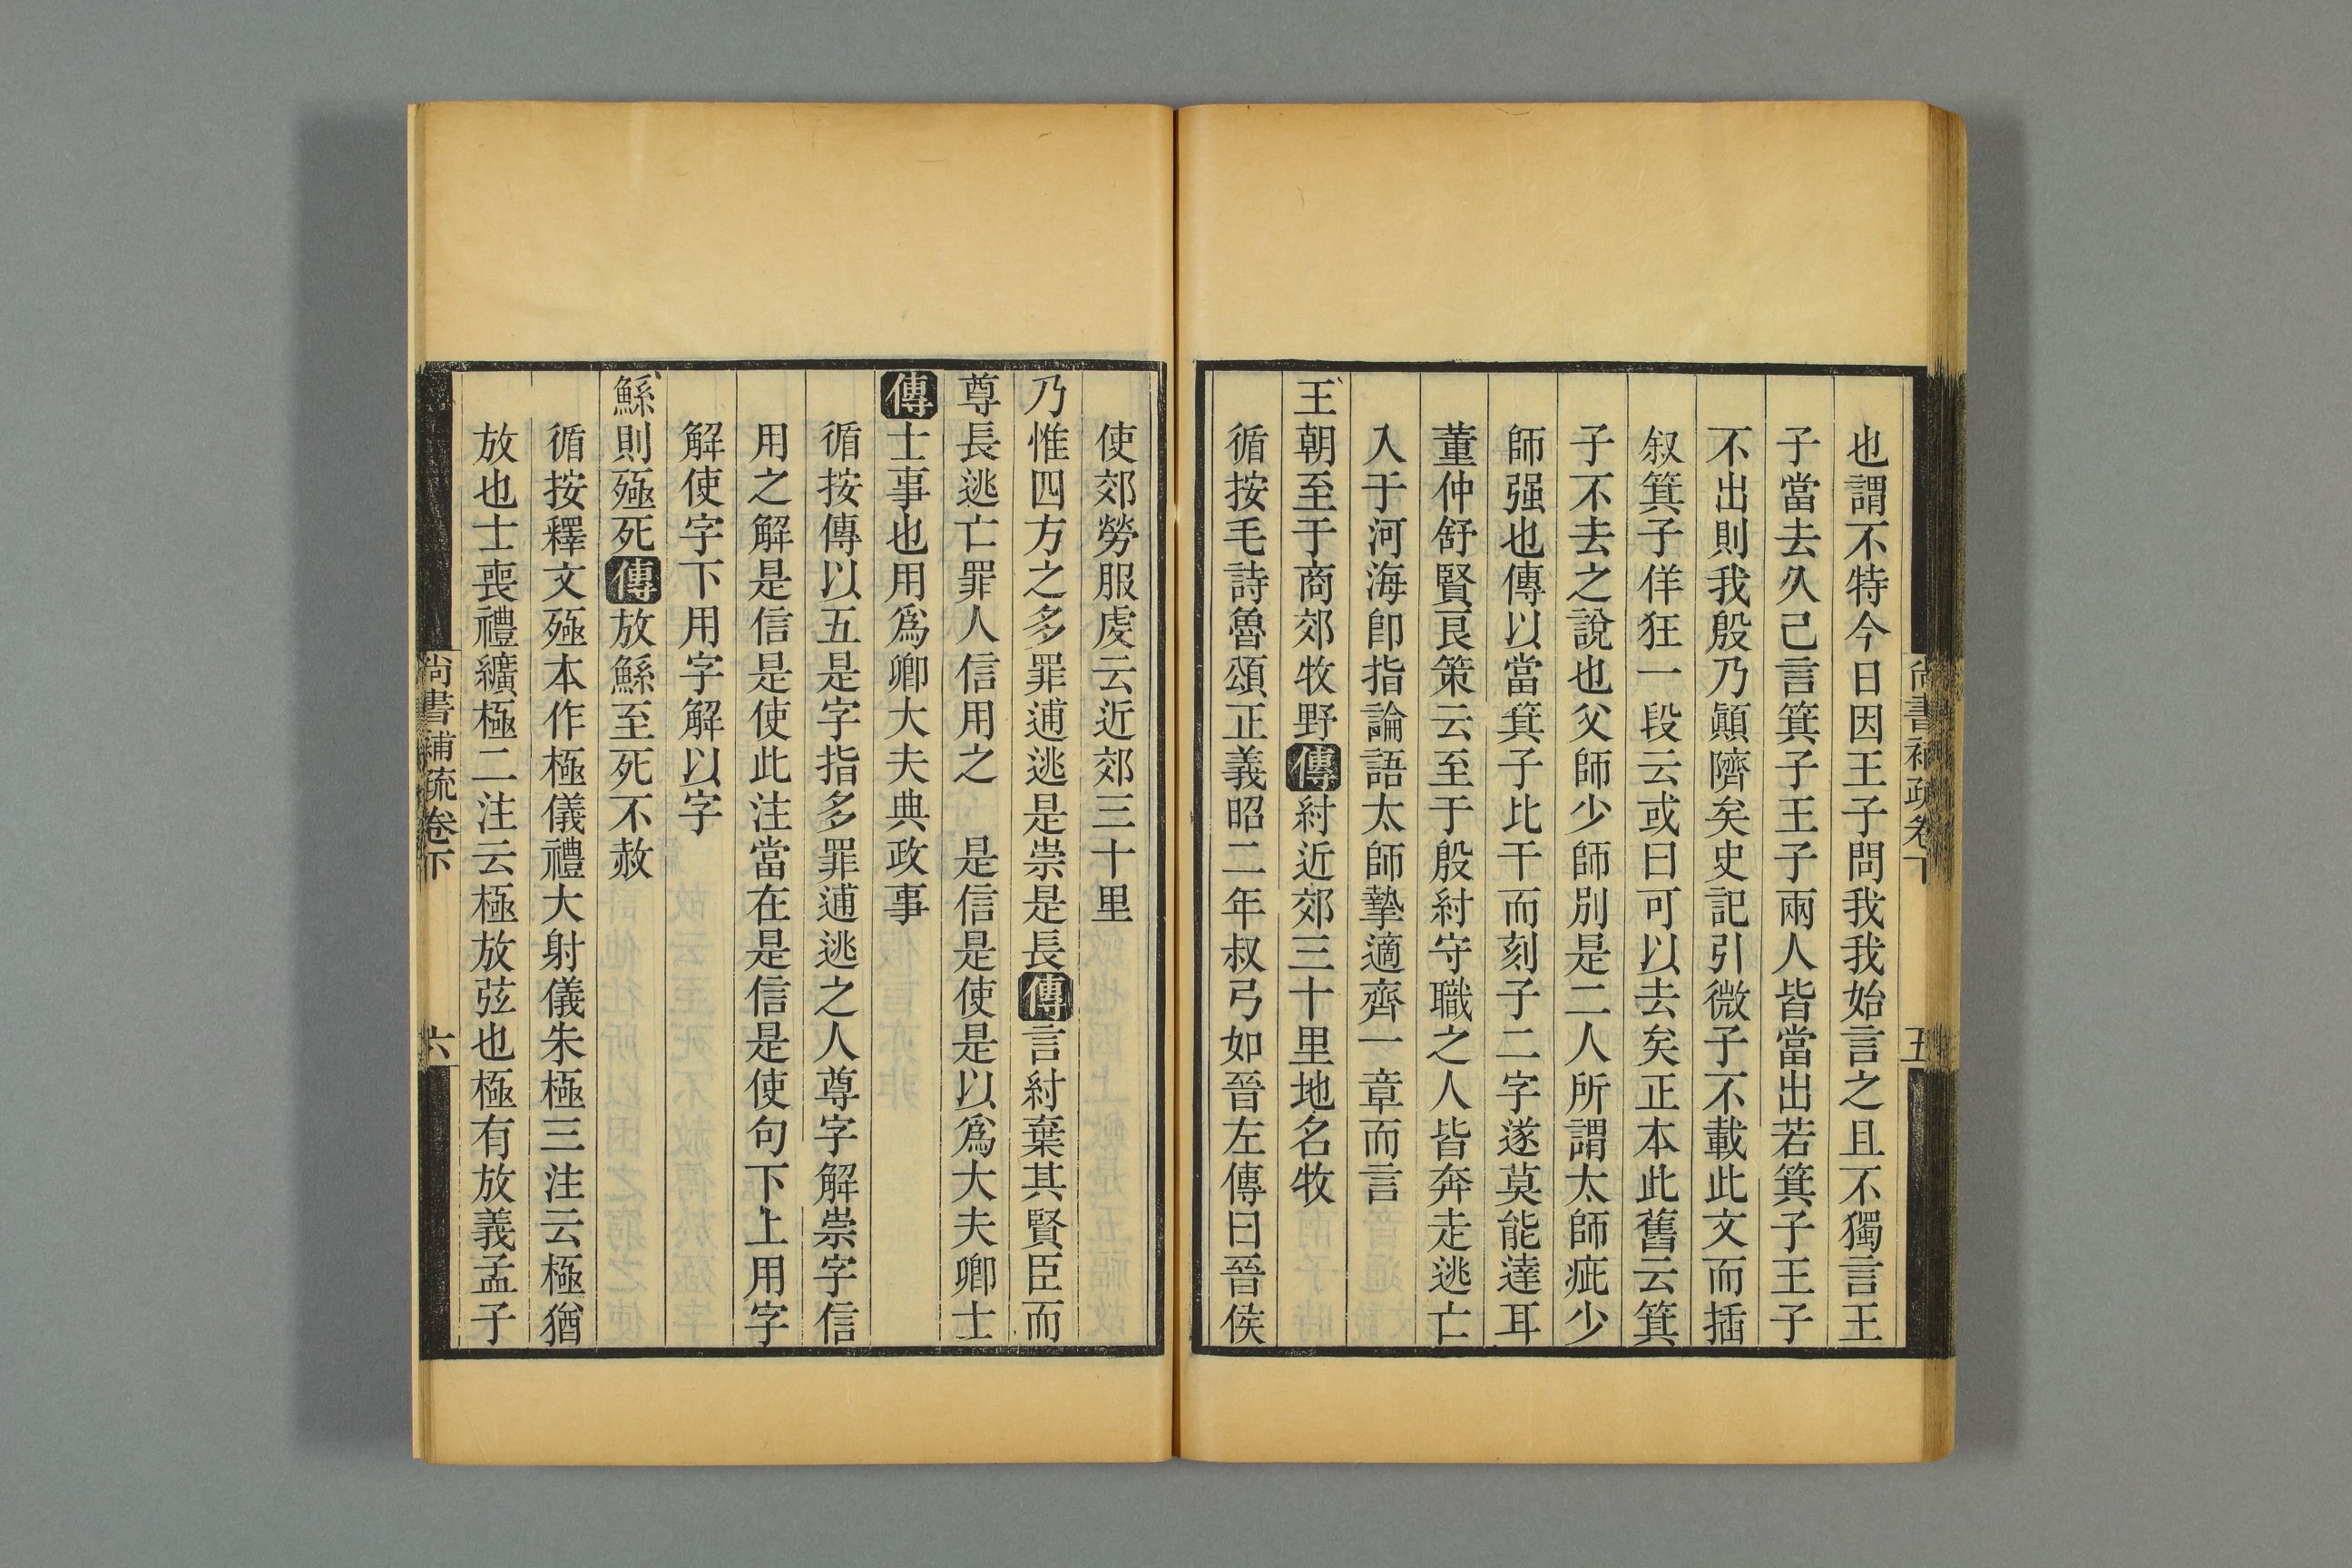 尚書補疏卷下
五
也謂不特今日因王子問我我始言之且不獨言王
子當去久已言箕子王子兩人皆當出若箕子王子
不出則我殷乃顚隮矣史記引微子不載此文而插
叙箕子佯狂一段云或曰可以去矣正本此舊云箕
子不去之說也父師少師別是二人所謂太師疵少
師强也傳以當箕子比干而刻子二字遂莫能達耳
董仲舒賢良策云至于殷紂守職之人皆奔走逃亡
入于河海卽指論語太師摯適齊一章而言
王朝至于商郊牧野傳紂近郊三十里地名牧
循按毛詩魯頌正義昭二年叔弓如晉左傳曰晉侯
使郊勞服虔云近郊三十里
乃惟四方之多罪逋逃是崇是長傳言紂棄其賢臣而
尊長逃亡罪人信用之 是信是使是以爲大夫卿士
傳士事也用爲卿大夫典政事
循按傳以五是字指多罪逋逃之人尊字解崇字信
用之解是信是使此注當在是信是使句下上用字
解使字下用字解以字
鯀則殛死傳放鯀至死不赦
循按釋文殛本作極儀禮大射儀朱極三注云極猶
放也士喪禮纊極二注云極放弦也極有放義孟子
尚書補疏卷下
六